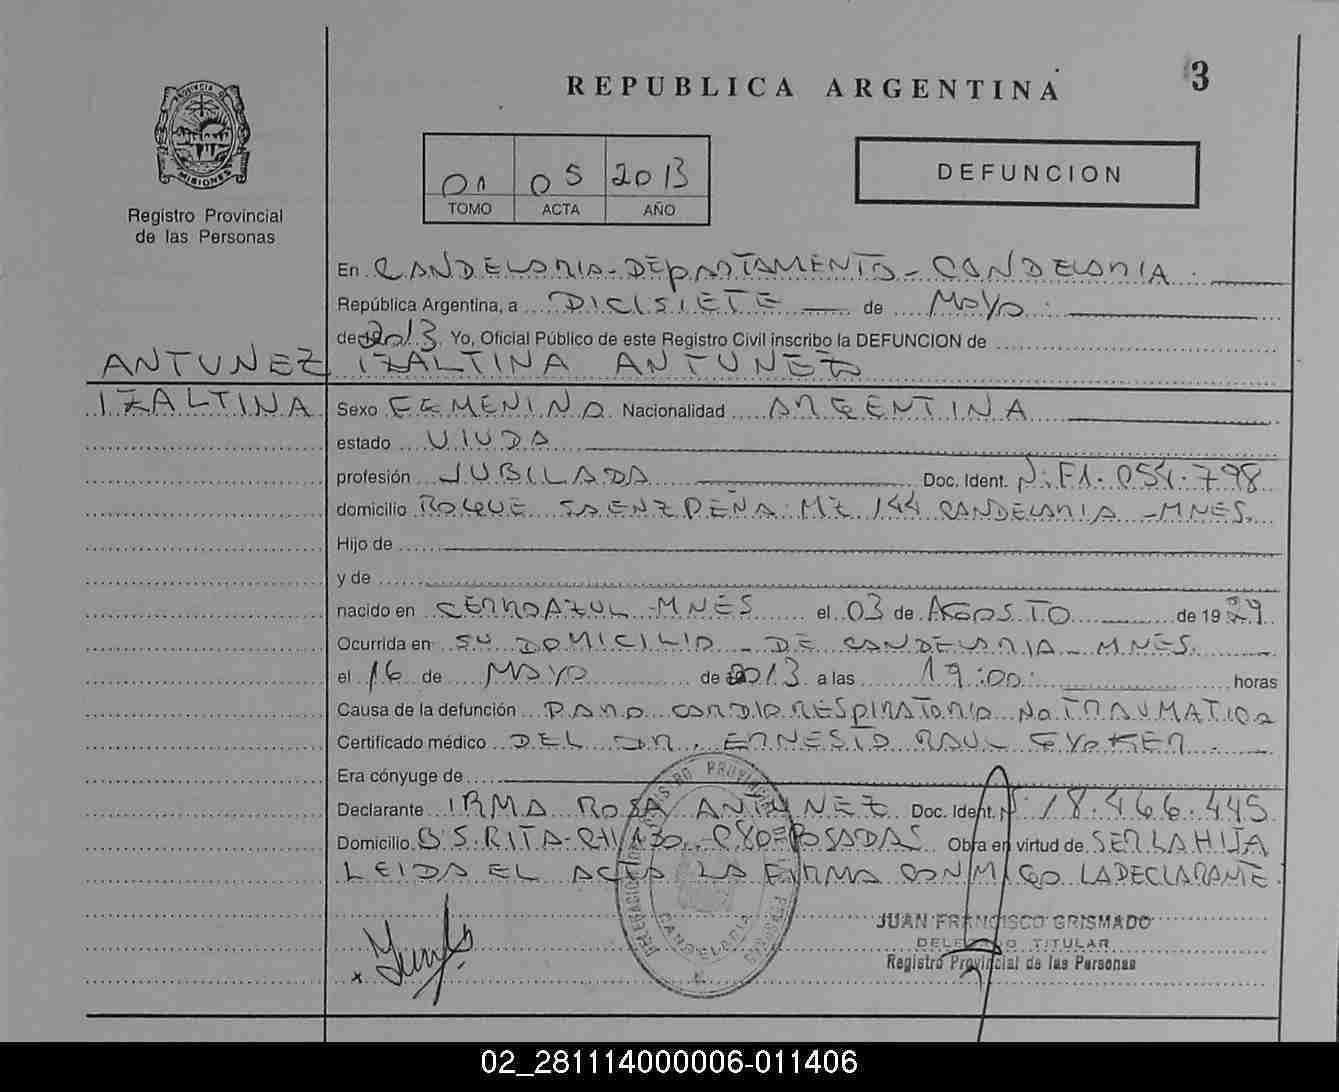 3
REPUBLICA ARGENTINA
PROVINCIA DE
MISIONES
Registro Provincial
de las Personas
01 05 2013
TOMO ACTA AÑO
DEFUNCION
En CANDELARIA - DEPARTAMENTO - CANDELARIA
República Argentina, a DICISIETE de MAYO
de 2013 Yo, Oficial Público de este Registro Civil inscribo la DEFUNCION de
ANTUNEZ IZALTINA ANTUNEZ
IZALTINA Sexo FEMENINO Nacionalidad ARGENTINA
estado VIUDA
profesión JUBILADA Doc. Ident. Nº F1.054.798
domicilio ROQUE SAENZ PEÑA MZ 144 CANDELARIA - MNES.
Hijo de
y de
nacido en CERROAZUL - MNES el 03 de AGOSTO de 1929
Ocurrida en SU DOMICILIO - DE CANDELARIA - MNES.
el 16 de MAYO de 2013 a las 19:00 horas
Causa de la defunción PARO CARDIO RESPIRATORIO NO TRAUMATICO
Certificado médico DEL DR. ERNESTO RAUL GYOKER.
Era cónyuge de
Declarante IRMA ROSA ANTUNEZ Doc. Ident. Nº 18.466.445
Domicilio Bº S. RITA - CH 130 - POSADAS Obra en virtud de SER LA HIJA
LEIDA EL ACTA LA FIRMA CONMIGO LA DECLARANTE
JUAN FRANCISCO GRISMADO
DELEGADO TITULAR
Registro Provincial de las Personas
CANDELARIA
02_281114000006-011406